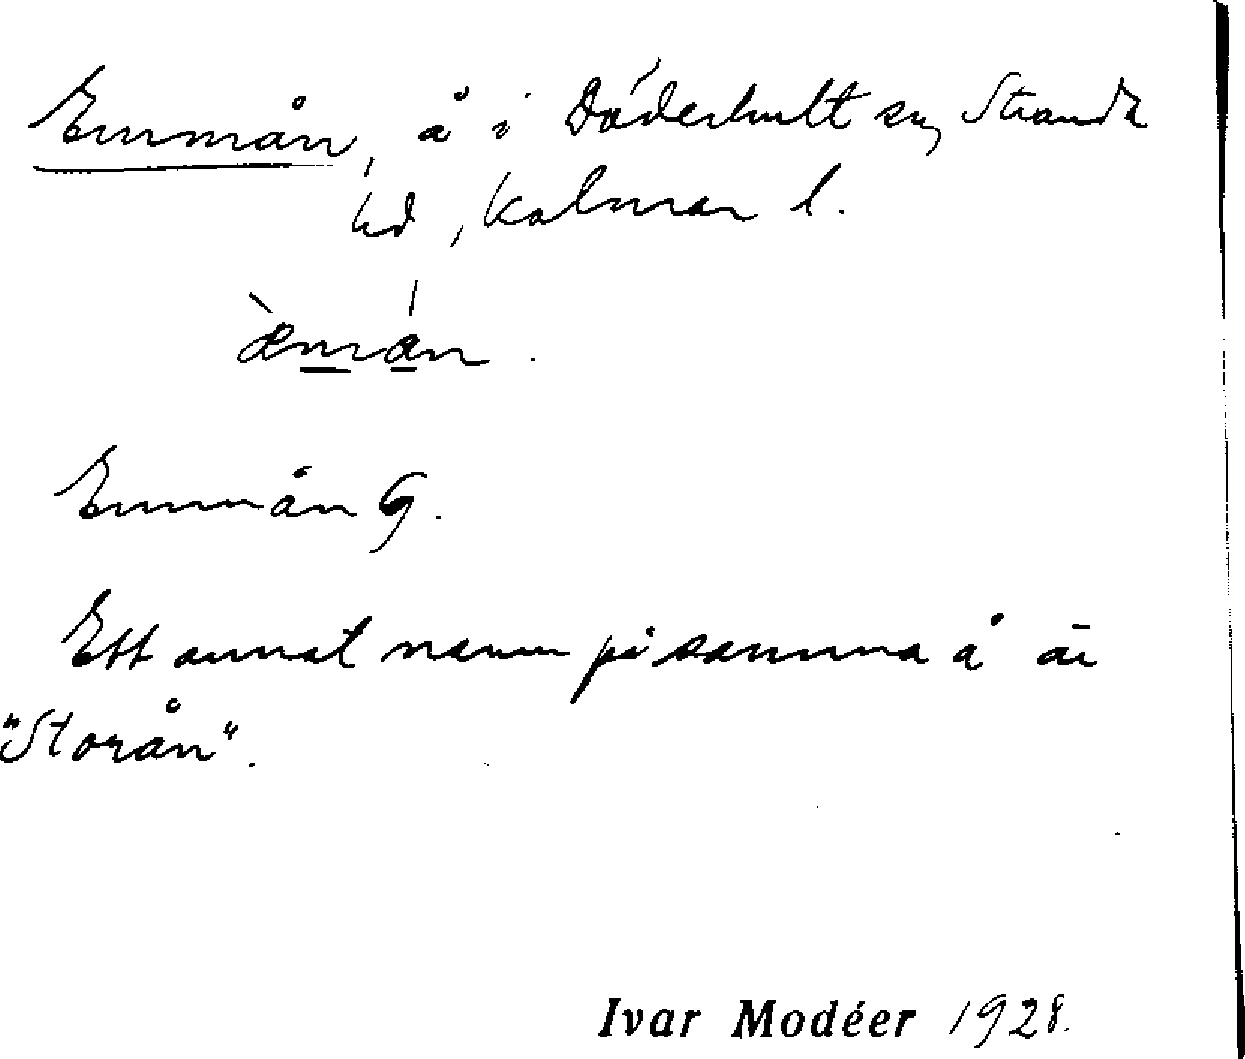 Emmån, å i Döderhult sn, Stranda
hd, Kalmar l.
æ̀mån.
Emmån G.
Ett annat namn på samma å är
"Storån".
Ivar Modéer 1928.